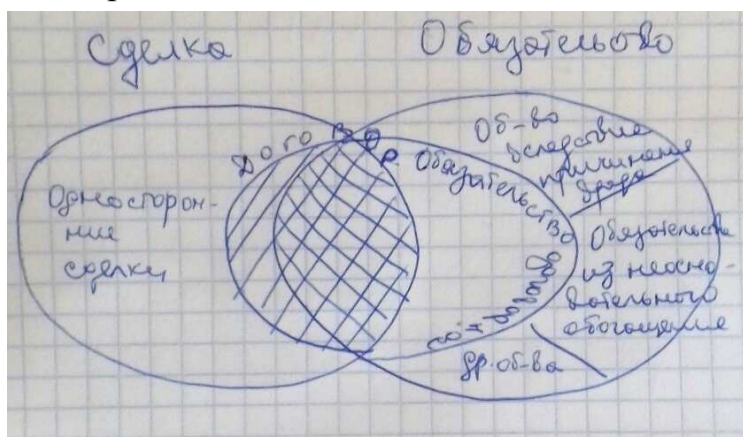 Сделка
Обязательство
Договор
Односторон-
ние
сделки
Обязательство
договорное
Об-во
вследствие
причинения
вреда
Обязательства
из неосно-
вательного
обогащения
др. об-ва